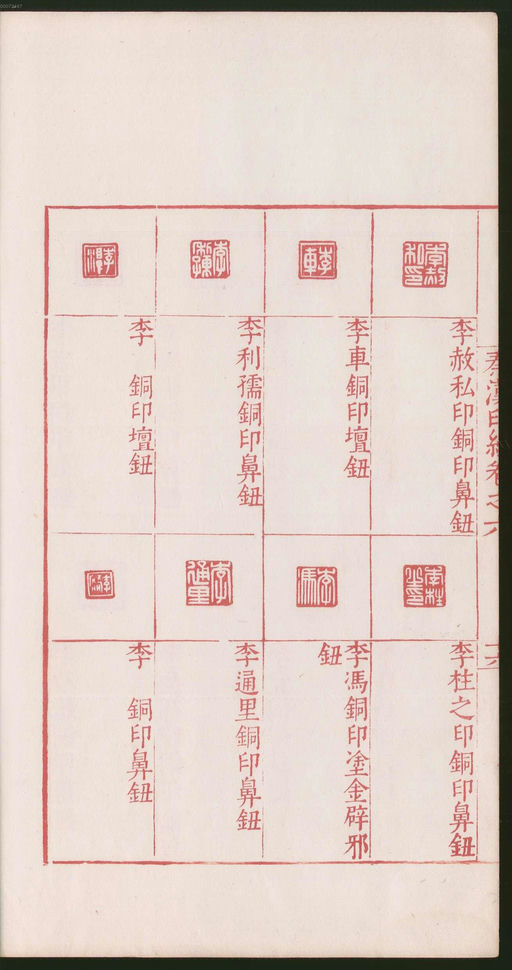 秦漢印統卷之六
十六
李赦私印銅印鼻鈕
李車銅印壇鈕
李利孺銅印鼻鈕
李 銅印壇鈕
李柱之印銅印鼻鈕
李馮銅印塗金辟邪
鈕
李通里銅印鼻鈕
李 銅印鼻鈕